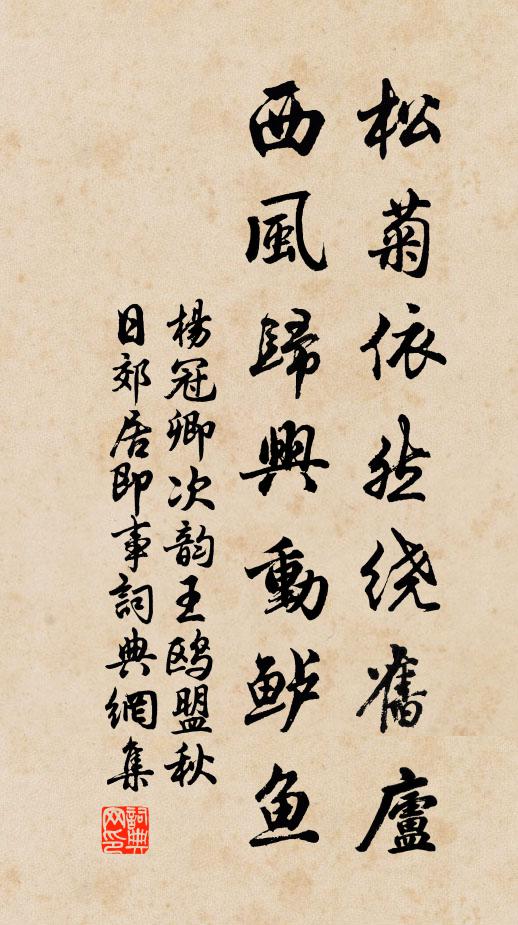 松菊依然绕舊廬
西風歸興動鲈鱼
楊冠卿次韵王鸥盟秋
日郊居即事詞典網集
詞典
网印